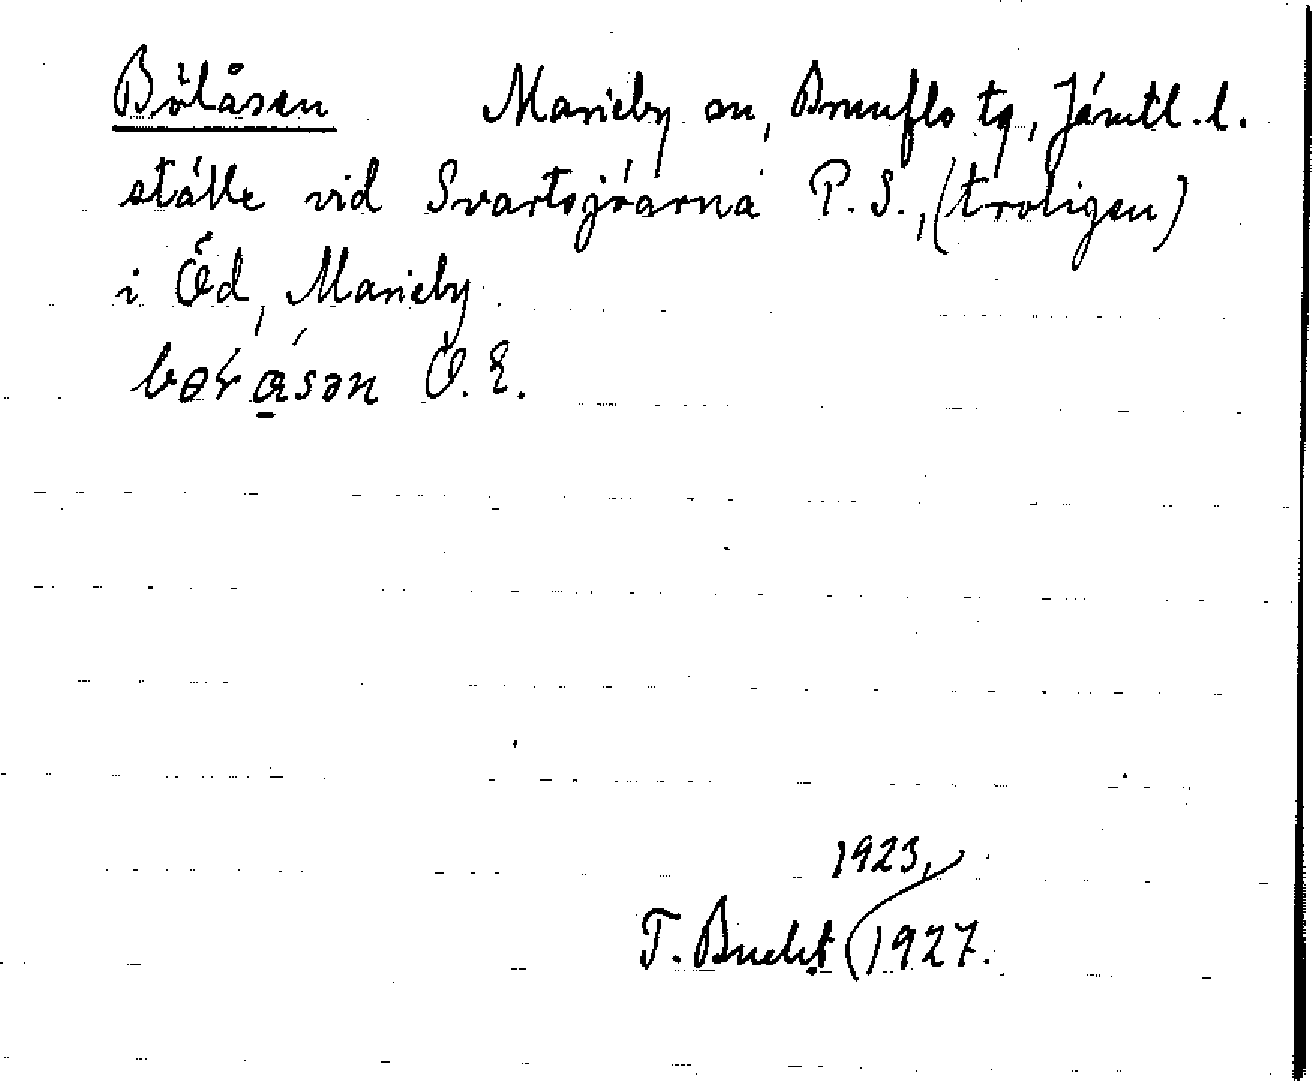 Bölåsen Marieby sn, Brunflo tg, Jämtl. l.
ställe vid Svartsjöarna P. S., (troligen)
i Öd, Marieby
O. E.
1923,
T. Bucht 1927.